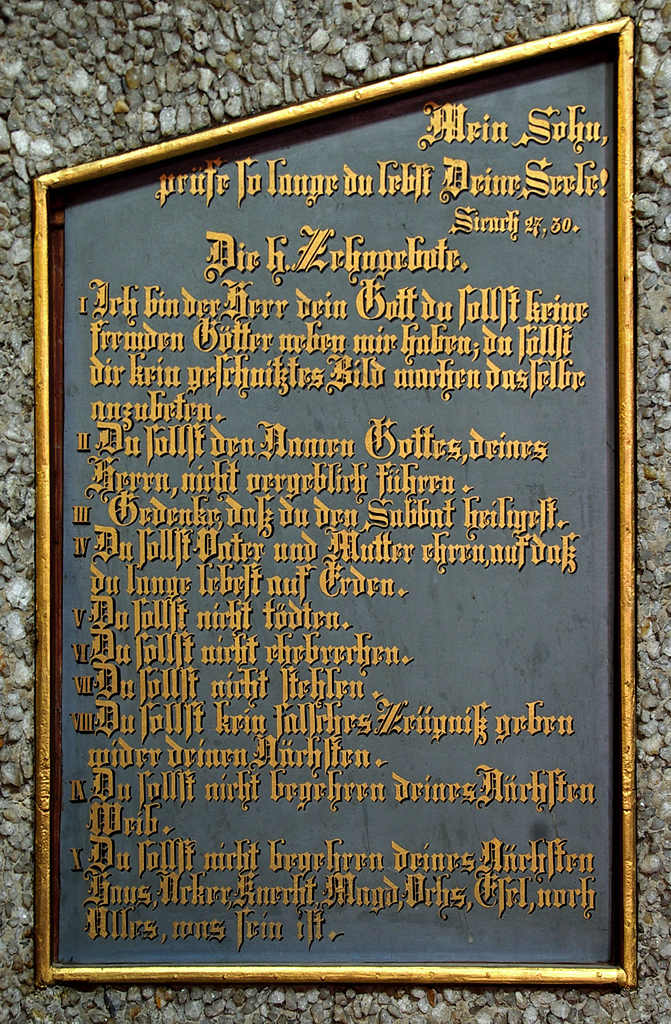 Mein Sohn,
prüfe so lange du lebst Deine Seele!
Sirach 27, 30.
Die h. Zehngebote.
I Ich bin der Herr dein Gott du sollst keine
fremden Götter neben mir haben; du sollst
dir kein geschnitztes Bild machen dasselbe
anzubeten.
II Du sollst den Namen Gottes, deines
Herrn, nicht vergeblich führen.
III Gedenke, daß du den Sabbat heiligest.
IV Du sollst Vater und Mutter ehren, auf daß
du lange lebest auf Erden.
V Du sollst nicht tödten.
VI Du sollst nicht ehebrechen.
VII Du sollst nicht stehlen.
VIII Du sollst kein falsches Zeügniß geben
wider deinen Nächsten.
IX Du sollst nicht begehren deines Nächsten
Weib.
X Du sollst nicht begehren deines Nächsten
Haus, Acker, Knecht, Magd, Ochs, Esel, noch
Alles, was sein ist.